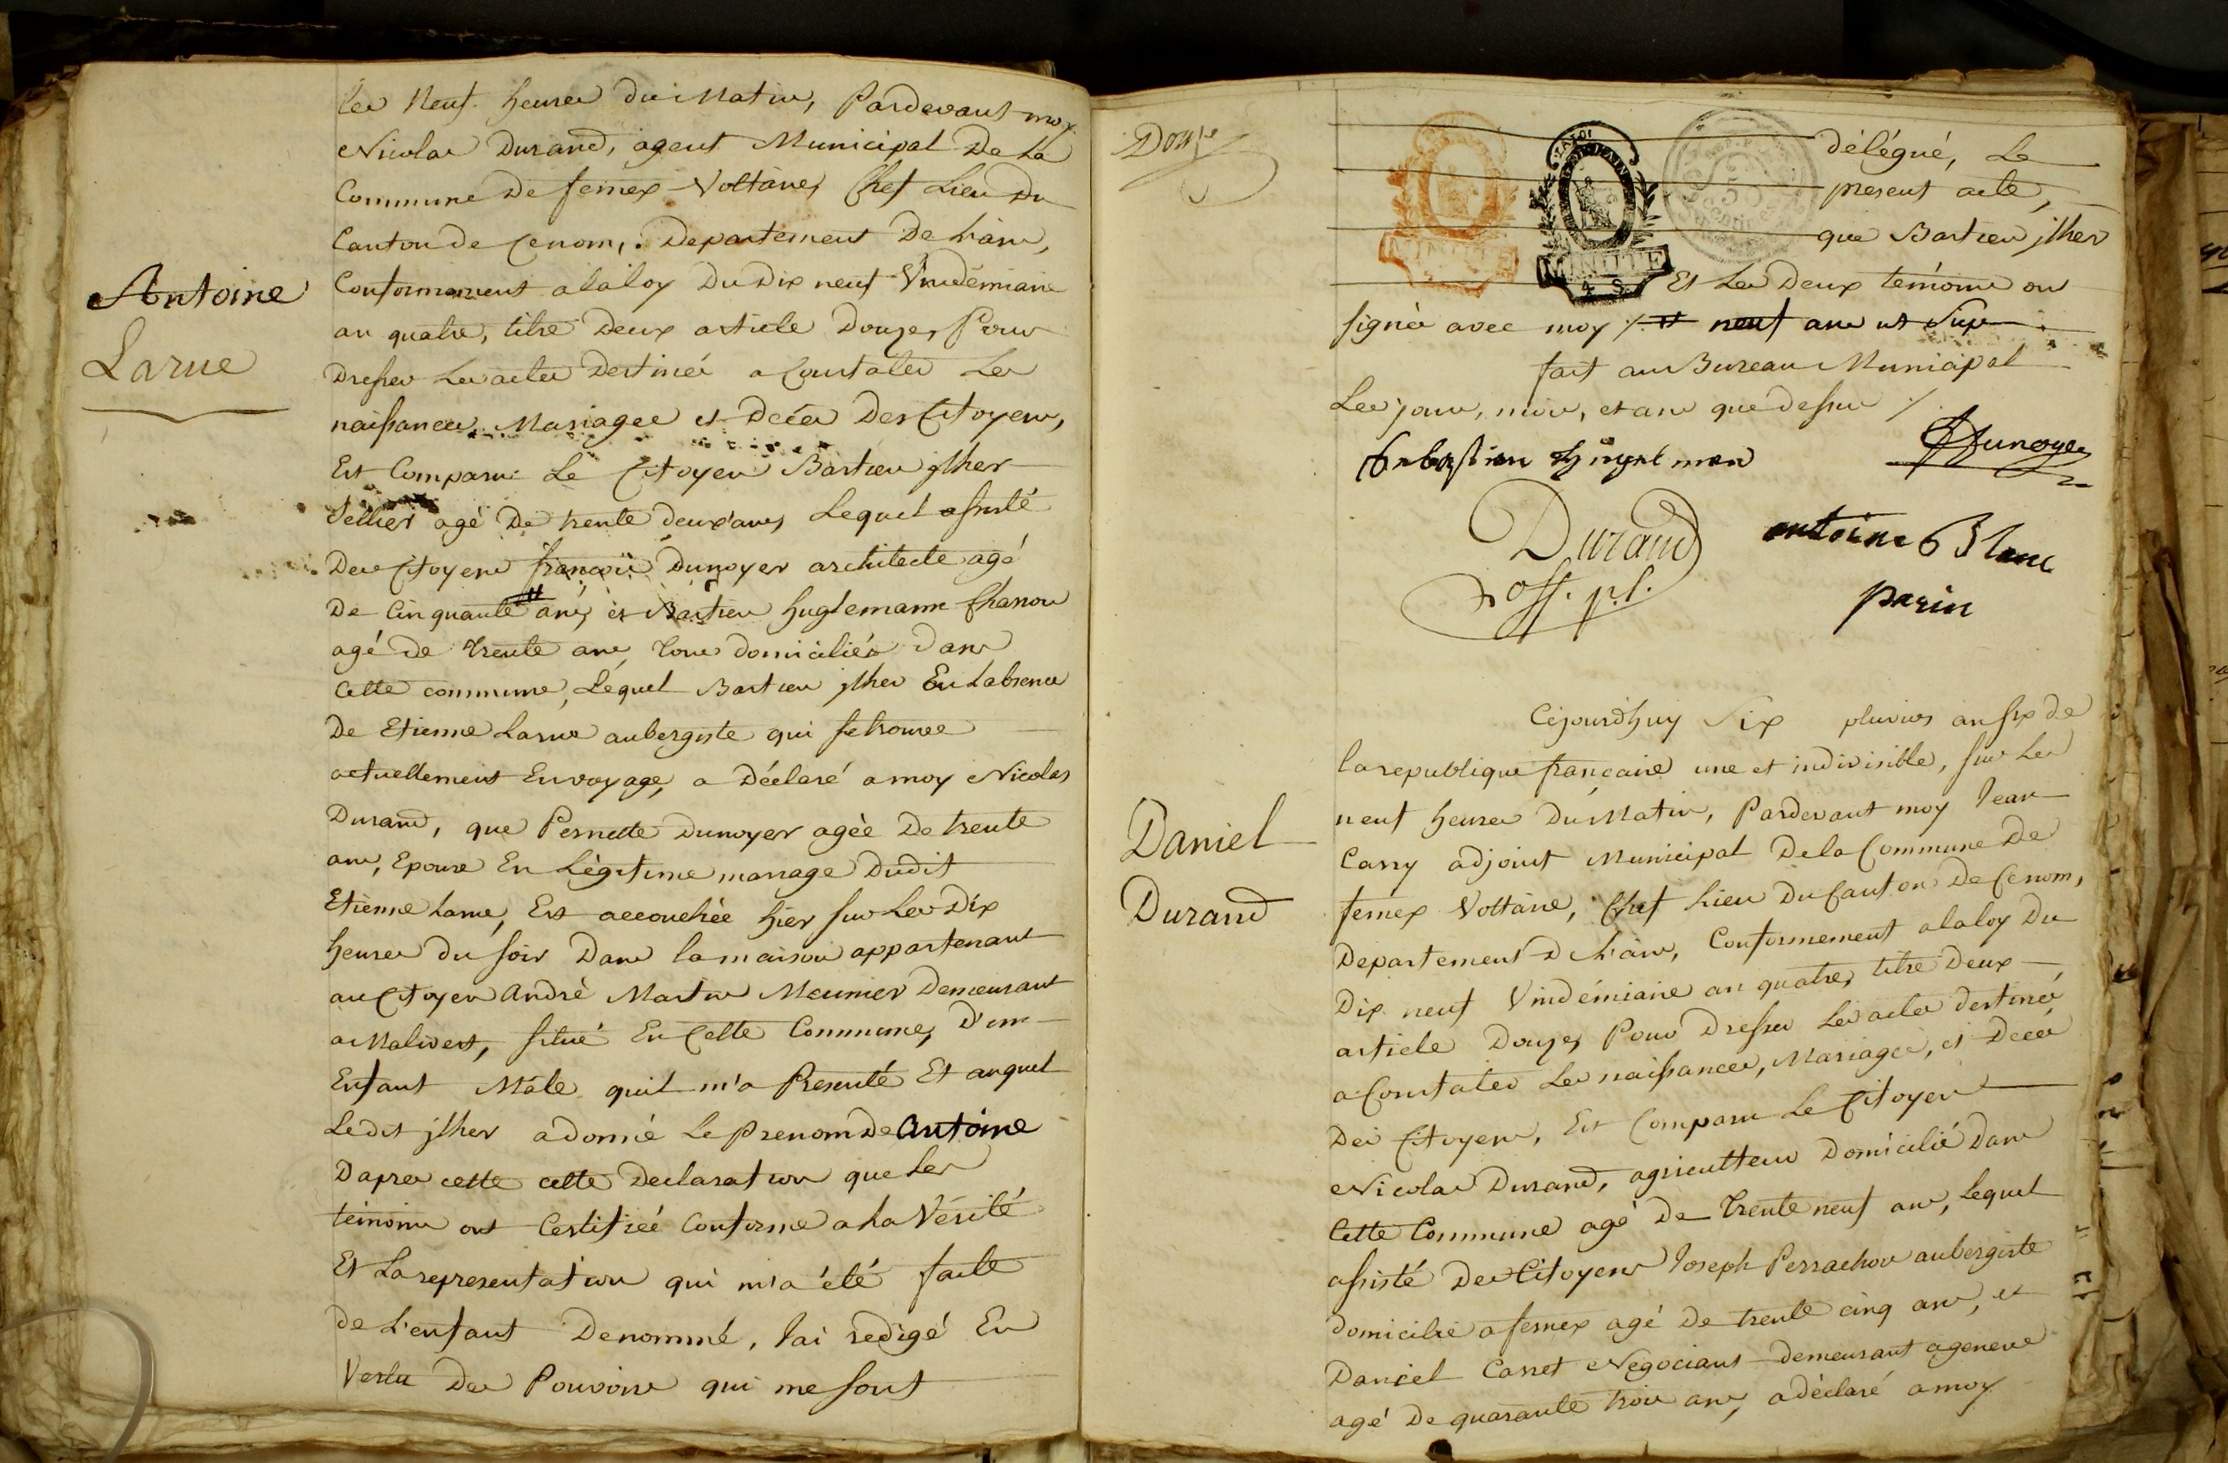 Antoine
Larue
les Neuf heures du Matin, Pardevant moy
Nicolas Durand, agent Municipal De La
Commune De fernex-Voltaire, Chef Lieu Du
Canton de Cenom,. Departement De L'ain,
Conformement alaloy Du Dix neuf Vindémiaire
an quatre, titre Deux article Douze, Pour
Dresser Les actes Destinés a Constater Les
naissances, Mariages et Décés Des Citoyens,
Est Comparu Le Citoyen Bastien jlher
Sellier agé De trente deux ans, Lequel assisté
Des Citoyens françois Dunoyer architecte agé
De Cinquante ans, et Bastien huglemann Charron
agé De trente ans, tous domiciliés Dans
Cette commune, Lequel Bastien jlher En Labsence
De Etienne Larue aubergiste qui se trouve
actuellement En voyage, a Déclaré a moy Nicolas
Durand, que Pernette Dunoyer agée De trente
ans, Epouse En Légitime mariage Dudit
Etienne Larue, Est accouchée hier, sur Les Dix
heures du soir Dans la maison appartenant
au Citoyen André Martin Meunier Demeurant
a Malivert, situé En Cette Commune, D'un
Enfant Mâle quil m'a Presenté Et auquel
Ledit jlher a donné Le prenom De Antoine
Dapres cette cette Declaration que Les
témoins ont Certifiée Conforme a La Vérité
Et La representation qui m'a été faite
de L'enfant Denommé, Jai redigé En
Vertu Des Pouvoirs qui me sont
Douze
délégué, Le
present acte,
que Bastien jlher
MINUTE
MINUTE
4 S
Et Les Deux témoins on
signés avec moy ·/· et neuf ans et Six
fait au Bureau Municipal
Les jour, mois, et an que dessus /.
Sebastien huglemen
Dunoyer
Durand
off. p.l.
antoine Blanc
parin
Daniel
Durand
Cejourdhuy Six pluvios an six de
la republique française une et indivisible, sur Les
neuf heures Du Matin, Pardevant moy Jean
Carry adjoint Municipal De la Commune De
fernex Voltaire, Chef Lieu Du Canton De Cenom,
Departement D L'ain, Conformement alaloy Du
Dix neuf Vindémiaire an quatre, titre Deux,
article Douze, Pour Dresser Les actes destinés
a Constater Les naissances, Mariages, et Décés
Des Citoyens, Est Comparu Le Citoyen
Nicolas Durand, agriculteur Domicilié Dans
Cette Commune agé De trente neuf ans, Lequel
assisté Des Citoyens Joseph Perrachon aubergiste
domicilié a fernex agé De trente cinq ans, et
Daniel Carret Negociant demeurant a geneve
agé De quarante trois ans, a déclaré a moy